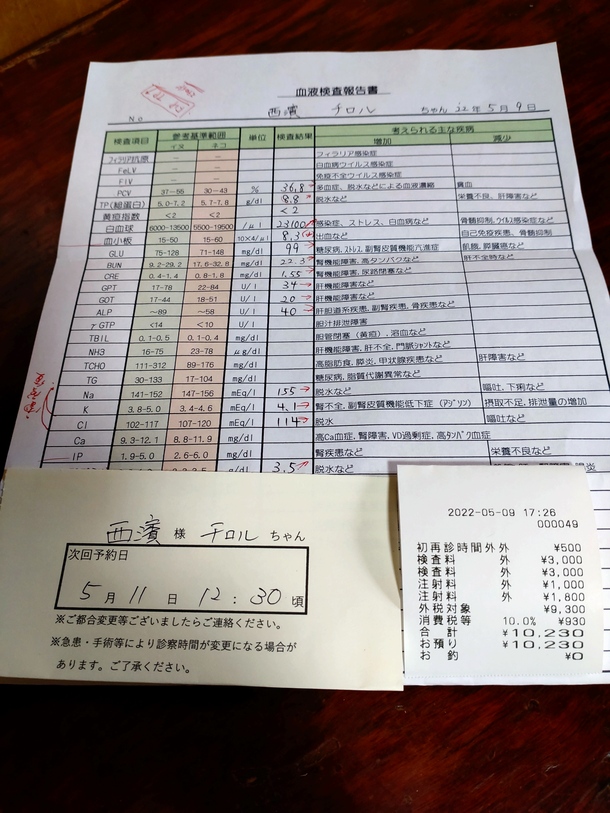 血液検査報告書
No
西濱 チロル ちゃん 22年 5月 9日
検査項目 参考基準範囲 単位 検査結果 考えられる主な疾病
イヌ ネコ 増加 減少
フィラリア抗原 － － フィラリア感染症
FeLV － － 白血病ウイルス感染症
FIV － － 免疫不全ウイルス感染症
PCV 37-55 30-43 % 36.8 多血症、脱水などによる血液濃縮 貧血
TP(総蛋白) 5.0-7.2 5.7-7.8 g/dl 8.8 脱水など 栄養不良、肝障害など
黄疸指数 <2 <2 <2
白血球 6000-13500 5500-19500 /μl 23100 感染症、ストレス、白血病など 骨髄抑制、ウイルス感染症など
血小板 15-50 15-60 10×4/μl 8.3 出血など 自己免疫疾患、骨髄抑制
GLU 75-128 71-148 mg/dl 99 糖尿病、ストレス、副腎皮質機能亢進症 飢餓、膵臓癌など
BUN 9.2-29.2 17.6-32.8 mg/dl 22.3 腎機能障害、高タンパクなど 肝不全時など
CRE 0.4-1.4 0.8-1.8 mg/dl 1.55 腎機能障害、尿路閉塞など
GPT 17-78 22-84 U/l 34 肝機能障害など
GOT 17-44 18-51 U/l 20 肝機能障害など
ALP ～89 ～58 U/l 40 肝胆道系疾患、副腎疾患、骨疾患など
γGTP <14 <10 U/l 胆汁排泄障害
TBIL 0.1-0.5 0.1-0.4 mg/dl 胆管閉塞(黄疸)、溶血など
NH3 16-75 23-78 μg/dl 肝機能障害、肝不全、門脈シャントなど
TCHO 111-312 89-176 mg/dl 高脂肪食、膵炎、甲状腺疾患など 肝障害など
TG 30-133 17-104 mg/dl 糖尿病、脂質代謝異常など
Na 141-152 147-156 mEq/l 155 脱水など 嘔吐、下痢など
K 3.8-5.0 3.4-4.6 mEq/l 4.1 腎不全、副腎皮質機能低下症(アジソン) 摂取不足、排泄量の増加
Cl 102-117 107-120 mEq/l 114 脱水 嘔吐など
Ca 9.3-12.1 8.8-11.9 mg/dl 高Ca血症、腎障害、VD過剰症、高タンパク血症
IP 1.9-5.0 2.6-6.0 mg/dl 腎疾患など 栄養不良など
3.5 脱水など
西濱 様 チロル ちゃん
次回予約日
5月 11日 12:30頃
※ご都合変更等ございましたらご連絡ください。
※急患・手術等により診察時間が変更になる場合が
あります。ご了承ください。
2022-05-09 17:26
000049
初再診時間外 外 ¥500
検査料 外 ¥3,000
検査料 外 ¥3,000
注射料 外 ¥1,000
注射料 外 ¥1,800
外税対象 ¥9,300
消費税等 10.0% ¥930
合 計 ¥10,230
お預り ¥10,230
お 釣 ¥0